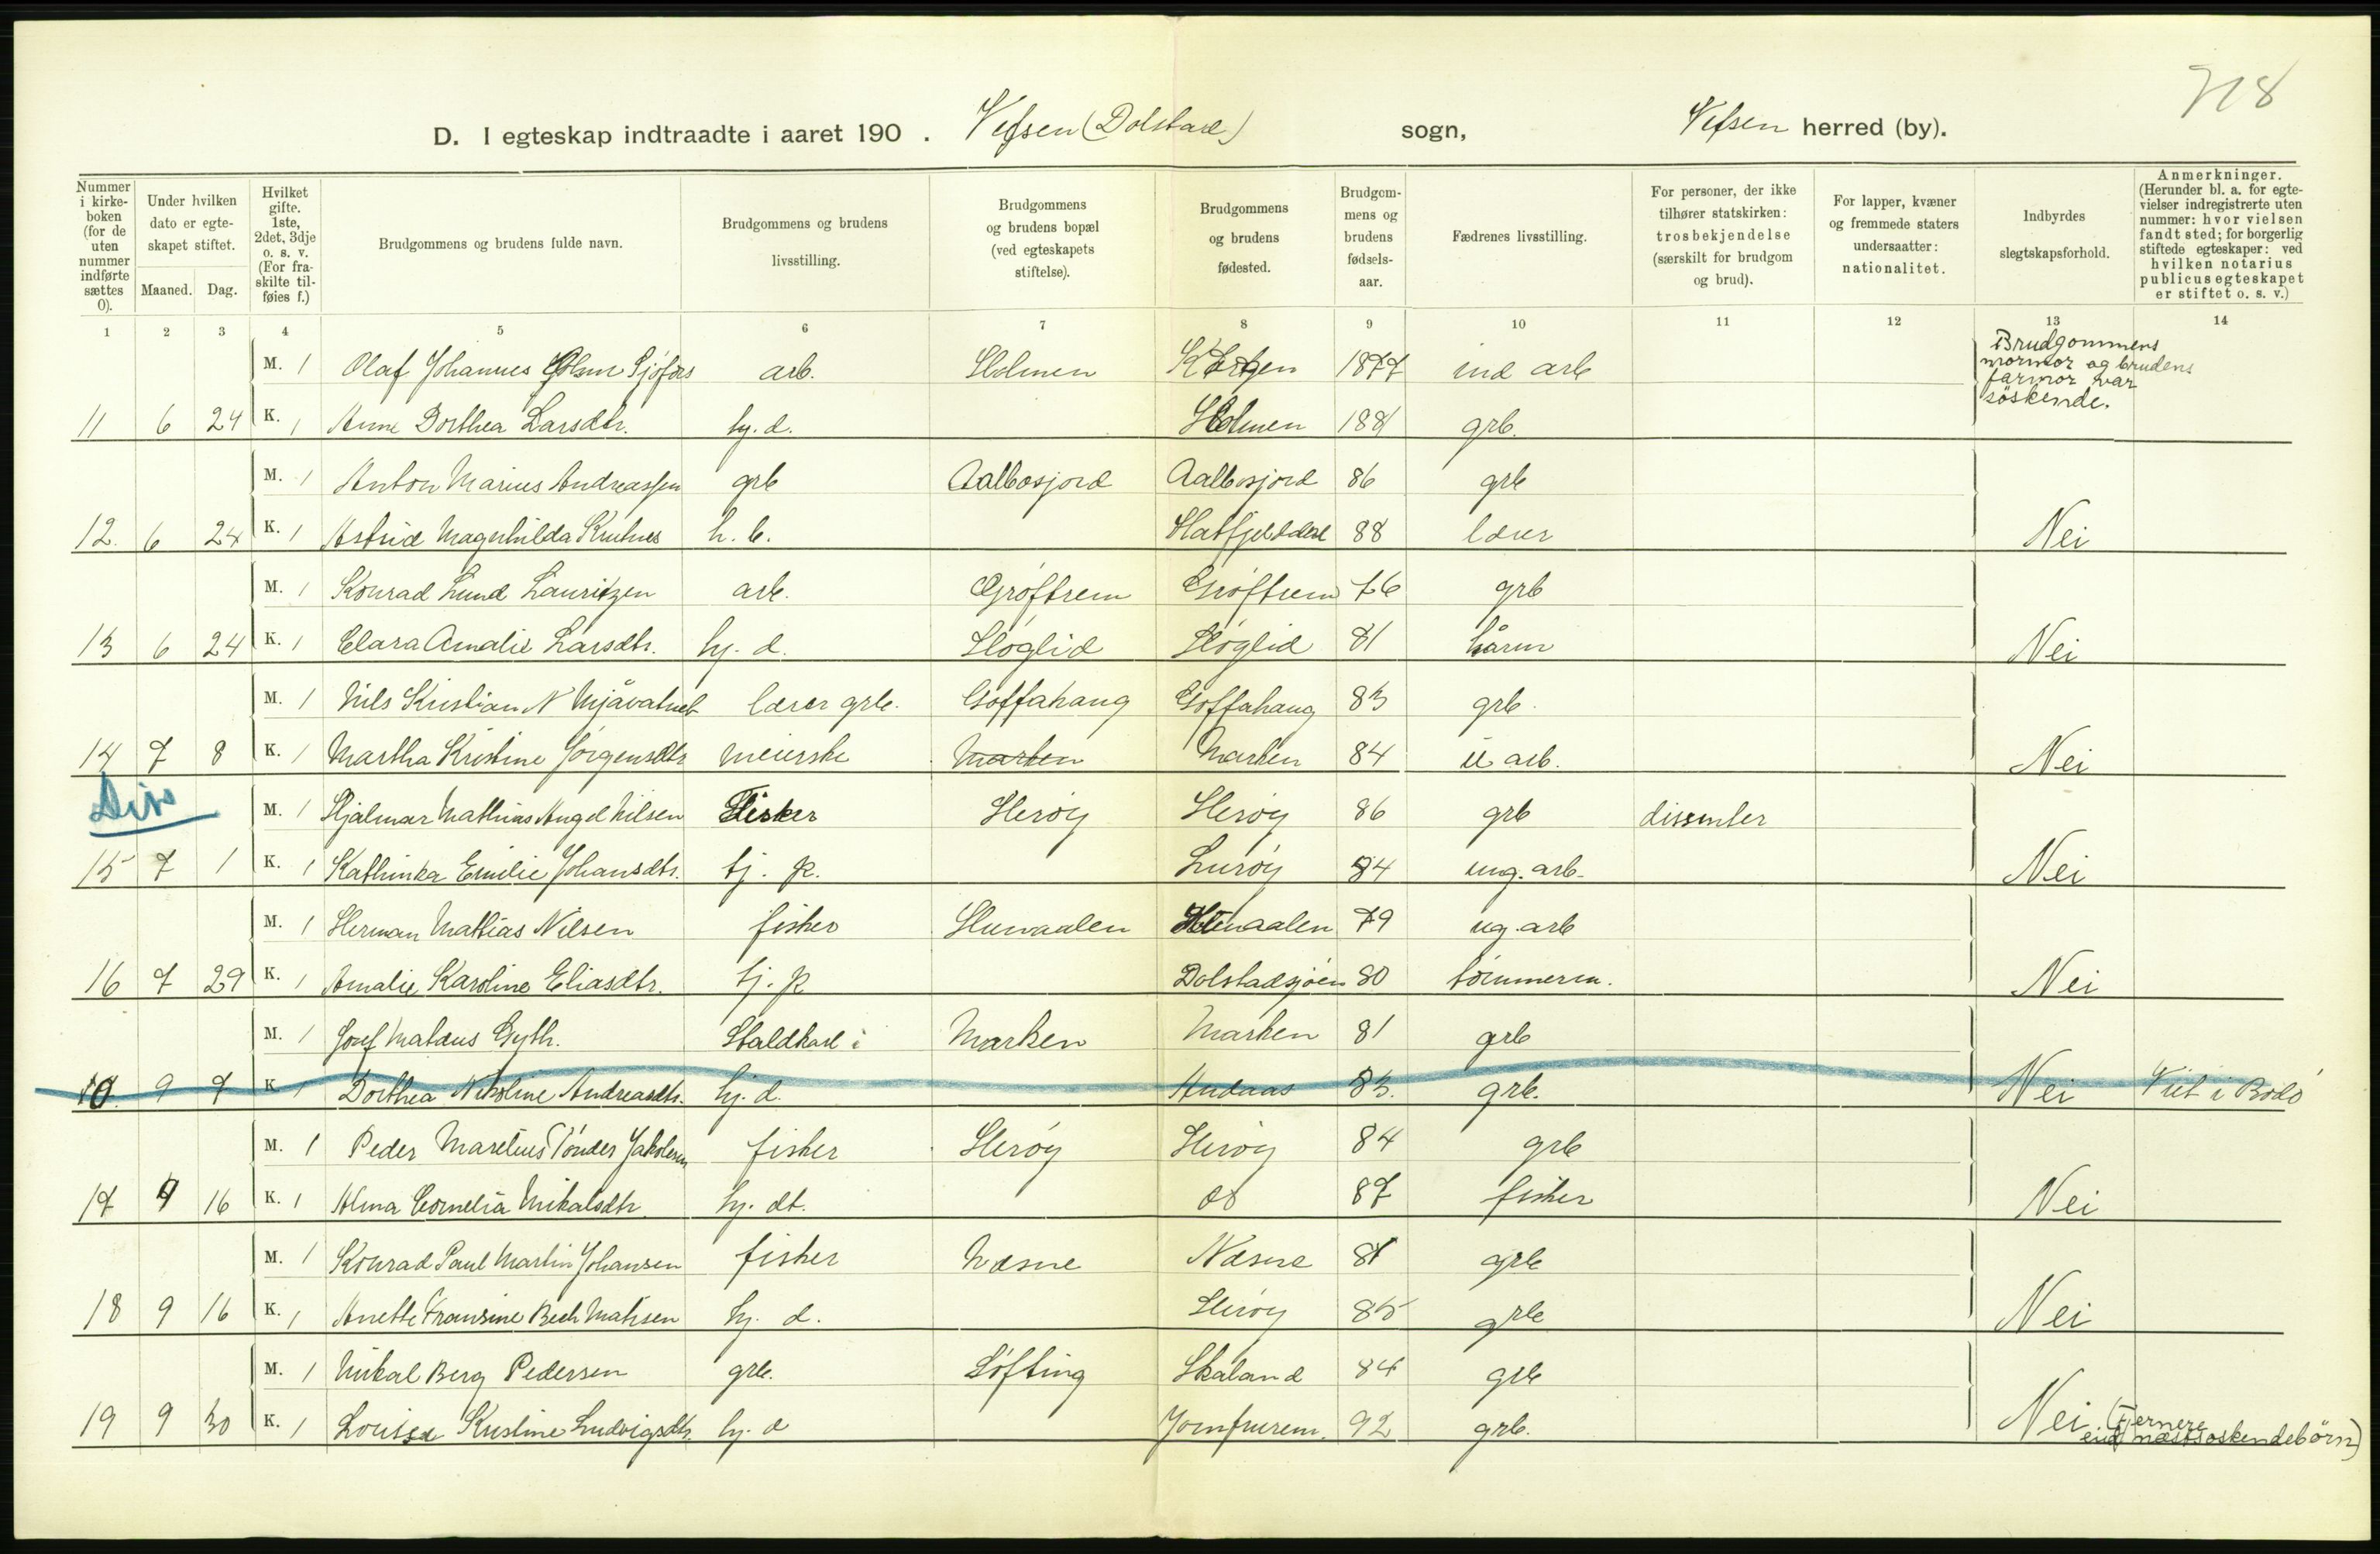 718
D. I egteskap indtraadte i aaret 190 . Vefsen (Dolstad) sogn, Vefsen herred (by).
Nummer i kirke-boken (for de uten nummer indførte sættes 0).
Under hvilken dato er egte-skapet stiftet.
Maaned. Dag.
Hvilket gifte. 1ste, 2det, 3dje o. s. v. (For fra-skilte til-føies f.)
Brudgommens og brudens fulde navn.
Brudgommens og brudens livsstilling.
Brudgommens og brudens bopæl (ved egteskapets stiftelse).
Brudgommens og brudens fødested.
Brudgom-mens og brudens fødsels-aar.
Fædrenes livsstilling.
For personer, der ikke tilhører statskirken: trosbekjendelse (særskilt for brudgom og brud).
For lapper, kvæner og fremmede staters undersaatter: nationalitet.
Indbyrdes slegtskapsforhold.
Anmerkninger. (Herunder bl. a. for egte-vielser indregistrerte uten nummer: hvor vielsen fandt sted; for borgerlig stiftede egteskaper: ved hvilken notarius publicus egteskapet er stiftet o. s. v.)
1 2 3 4 5 6 7 8 9 10 11 12 13 14
M. 1 Olaf Johannes Sjøfors arb. Holmen 1877 ind arb
Brudgommens mormor og brudens farmor var söskende.
11 6 24 K. 1 Anne Dorthea Larsdtr. hj. d. Holmen 1881 grb.
M. 1 Anton Marius Andreassen grb Aalbosjord Aalbosjord 86 grb
12. 6 24 K. 1 Astrid Magnhilda h. b. Hatfjelddal 88 lærer Nei
M. 1 Konrad Lund Lauritzen arb. Grøftrem Grøftrem 76 grb
13 6 24 K. 1 Clara Amalie Larsdtr. hj. d. Høglid Høglid 81 Nei
M. 1 Nils Kristian N Mjåvatnet lærer grb. Goffahaug Goffahaug 83 grb.
14 7 8 K. 1 Martha Kristine Jørgensdtr meierske Marken Marken 84 arb. Nei
Diss
M. 1 Hjalmar Mathias Angel Nilsen Fisker Herøy Herøy 86 grb dissenter
15 7 1 K. 1 Kathinka Emilie Johansdtr. tj. p. Lurøy 84 ung. arb. Nei
M. 1 Herman Mathias Nilsen fisker 79 ug. arb
16 7 29 K. 1 Amalie Karoline Eliasdtr. tj. p Dolstadsjøen 80 tømmerm. Nei
M. 1 Josef Mataus Gyth. Staldkarl i Marken Marken 81 grb
0. 9 7 K. 1 Dorthea Nikoline Andreasdtr. hj. d. Andaas 83. grb. Nei Viet i Bodö
M. 1 Peder Marelius Tønder Jakobsen fisker Herøy Herøy 84 grb
17 9 16 K. 1 Alma Cornelia Mikalsdtr. hj. dt. do 87 fisker Nei
M. 1 Konrad Paul Martin Johansen fisker Næsne Næsne 81 grb
18 9 16 K. 1 Anette Fransine Bech Matisen hj. d. Herøy 85 grb Nei
M. 1 Mikal Berg Pedersen grb. Løfting Skaland 84 grb
19 9 30 K. 1 Louise Kristine Ludvigsdtr. hj. d Jomfrurem. 92 grb. Nei (Fjernere end næstsöskendebörn)